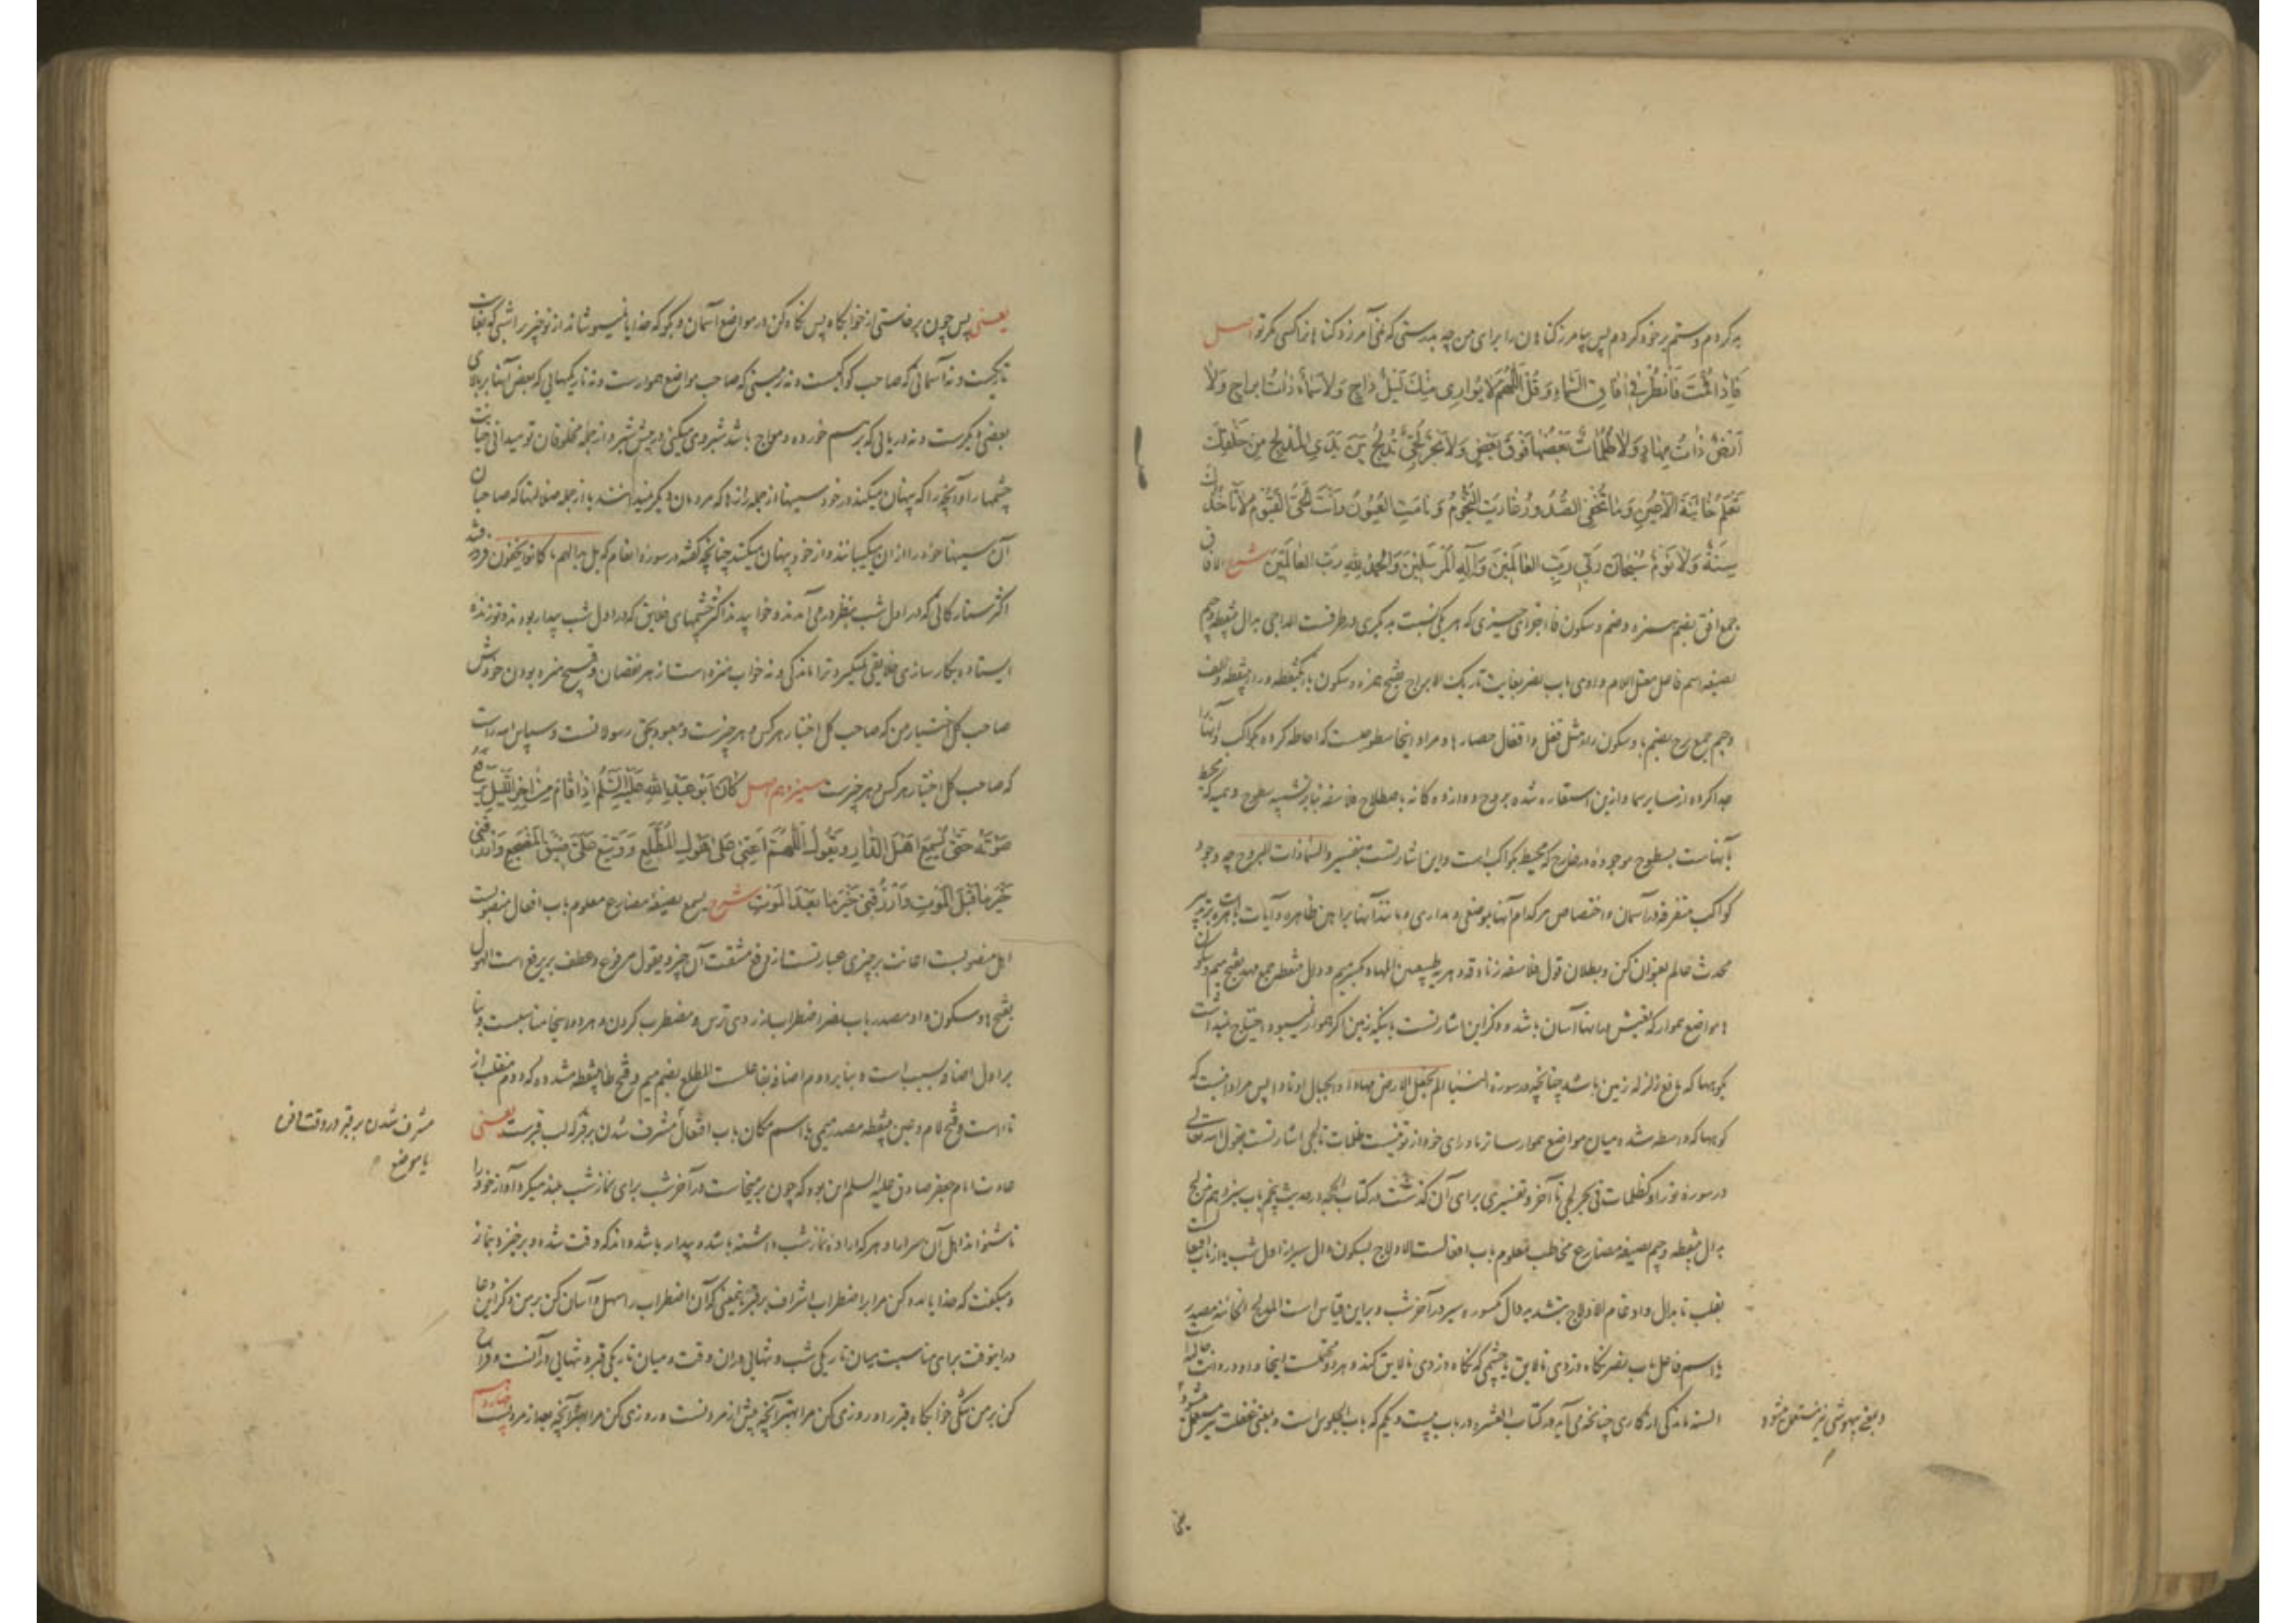 بد کردم و ستم بر خود کردم پس بیامرز کناهان را برای من چه بدرستی که نمی آمرزد کناهان را کسی مگر تو اصل
فَاِذَا قُمْتَ فَانْظُرْ فِی آفَاقِ السَّمَاءِ وَ قُلِ اللَّهُمَّ لَا یُوَارِی مِنْكَ لَیْلٌ دَاجٍ وَ لَا سَمَاءٌ ذَاتُ اَبْرَاجٍ وَ لَا
اَرْضٌ ذَاتُ مِهَادٍ وَ لَا ظُلُمَاتٌ بَعْضُهَا فَوْقَ بَعْضٍ وَ لَا بَحْرٌ لُجِّیٌّ تُدْلِجُ بَیْنَ یَدَیِ الْمُدْلِجِ مِنْ خَلْقِكَ
تَعْلَمُ خَائِنَةَ الْاَعْیُنِ وَ مَا تُخْفِی الصُّدُورُ غَارَتِ النُّجُومُ وَ نَامَتِ الْعُیُونُ وَ اَنْتَ الْحَیُّ الْقَیُّومُ لَا تَأْخُذُكَ
سِنَةٌ وَ لَا نَوْمٌ سُبْحَانَ رَبِّی رَبِّ الْعَالَمِینَ وَ اِلَهِ الْمُرْسَلِینَ وَ الْحَمْدُ لِلَّهِ رَبِّ الْعَالَمِینَ شرح الآفاق
جمع افق بضم همزه و ضم و سکون فا اجزای چیزی که هر یکی نسبت بدیکری در طرفست الداجی بدال بینقطه و جیم
بصیغه اسم فاعل معتل اللام واوی باب نصر بغایت تاریک الابراج بفتح همزه و سکون باء یکنقطه و راء بینقطه و الف
و جیم جمع برج بضم با و سکون راء مثل قفل و اقفال حصارها و مراد اینجا سطوحست که احاطه کرده بکواکب و آنها را
جدا کرده از سایر سما و ازین استعاره شده بروج دوازده کانه باصطلاح فلاسفه بنابر تشبیه سطوح وهمیه که محیط
بآنهاست بسطوح موجوده در خارج که محیط بکواکب است و این اشارتست بتفسیر و السماء ذات البروج چه وجود
کواکب متفرقه در آسمان و اختصاص هر کدام آنها بموضعی و مداری و مانند آنها براهین ظاهره و آیات باهره است بر تدبیر
محدث عالم بعنوان کن و بطلان قول فلاسفه زنادقه و دهریه طبیعیین المهاد بکسر میم و دال بینقطه جمع مهد بفتح میم و سکون
ها مواضع هموار که تعیش در آنها آسان باشد و ذکر این اشارتست باینکه زمین اکر هموار نمیبود احتیاج نمیداشت
بکوهها که مانع زلزله زمین باشد چنانچه در سوره النبا الم نجعل الارض مهادا و الجبال اوتادا پس مراد اینست که
کوهها که واسطه شده میان مواضع هموار ساتر ماورای خود از تو نیست ظلمات تا لجی اشارتست بقول الله تعالی
در سوره نور او کظلمات فی بحر لجی تا آخر و تفسیری برای آن کذشت در کتاب الحجه در حدیث پنجم باب سیزدهم تدلج
بدال بینقطه و جیم بصیغه مضارع مخاطب معلوم باب افعالست الادلاج بسکون دال سیر از اول شب یا از باب افتعالست
بقلب تا بدال و ادغام الادلاج بتشدید دال مکسوره سیر در آخر شب و براین قیاس است المدلج الخائنه مصدر
یا اسم فاعل باب نصر نکاه دزدی نالایق یا چشمی که نکاه دزدی نالایق کند و هر دو محتملست اینجا
السنه ماندکی از کاری چنانچه می آید در کتاب العشره در باب بیست و یکم که باب الجلوس است و بمعنی غفلت نیز مستعمل میشود
و بمعنی بیهوشی نیز مستعمل میشود
یعنی
یعنی پس چون برخاستی از خوابکاه پس نکاه کن در مواضع آسمان و بکو که خدایا نمیپوشاند از تو چیزی را شبی که بغایت
تاریکست و نه آسمانی که صاحب کواکبست و نه زمینی که صاحب مواضع هموارست و نه تاریکیهایی که بعض آنها بر بالای
بعضی دیکرست و نه دریایی که بر هم خورده و مواج باشد شبروی میکنی در پیش شبرو از جمله مخلوقان تو میدانی خیانت
چشمها را و آنچه را که پنهان میکند در خود سینها از جمله رازها که مردمان دیکر نمیدانند یا از جمله ضلالتها که صاحبان
آن سینها خود را از ان میکیبانند و از خود پنهان میکنند چنانچه کفته در سوره انعام که بل بدا لهم ما کانوا یخفون فرو شد
اکثر ستارکانی که در اول شب بنظر درمی آمدند و خوابیدند اکثر چشمهای خلایق که در اول شب بیدار بودند و تو زنده
ایستاده بکارسازی خلایقی نمیکیرد ترا ماندکی و نه خواب منزه است از هر نقصان و قبیح منزه بودن خودش
صاحب کل اختیار من که صاحب کل اختیار هر کس و هر چیزست و معبود بحق رسولانست و سپاس الله راست
که صاحب کل اختیار هر کس و هر چیزست سیزدهم اصل كَانَ اَبُو عَبْدِ اللَّهِ عَلَیْهِ السَّلَمُ اِذَا قَامَ مِنْ اٰخِرِ اللَّیْلِ یَرْفَعُ
صَوْتَهُ حَتَّی یُسْمِعَ اَهْلَ الدَّارِ وَ یَقُولُ اللَّهُمَّ اَعِنِّی عَلَی هَوْلِ الْمُطَّلَعِ وَ وَسِّعْ عَلَیَّ ضِیقَ الْمَضْجَعِ وَ ارْزُقْنِی
خَیْرَ مَا قَبْلَ الْمَوْتِ وَ ارْزُقْنِی خَیْرَ مَا بَعْدَ الْمَوْتِ شرح یسمع بصیغه مضارع معلوم باب افعال منصوبست
اهل منصوبست اعانت بر چیزی عبارتست از رفع مشقت آن چیز و یقول مرفوع و عطف بر یرفع است الهول
بفتح ها و سکون واو مصدر باب نصر اضطراب از روی ترس و مضطرب کردن و هر دو اینجا مناسبست و بنا
بر اول اضافه بسبب است و بنابر دوم اضافه بفاعلست المطلع بضم میم و فتح طاء بینقطه مشدده که دوم منقلب از
تاء است و فتح لام و عین بینقطه مصدر میمی یا اسم مکان باب افتعال مشرف شدن بر قبر که لب قبرست یعنی
مشرف شدن بر قبر در وقت
یا موضع
عادت امام جعفر صادق علیه السلم این بود که چون بر میخاست در آخر شب برای نماز شب بلند میکرد آواز خود را
تا شنواند اهل آن سرا را و هر که اراده نماز شب داشته باشد و بیدار باشد داند که وقت شده و برخیزد بنماز
و میکفت که خدایا مدد کن مرا بر اضطراب اشراف بر قبر باینمعنی که آن اضطراب را سهل و آسان کن بر من ذکر این دعا
درینوقت برای مناسبت میان تاریکی شب و تنهایی دران وقت و میان تاریکی قبر و تنهایی در آنست و فراخ
کن بر من تنکی خوابکاه قبر را و روزی کن مرا بهتر آنچه پیش از مردنست و روزی کن مرا بهتر آنچه بعد از مردنست چهاردهم